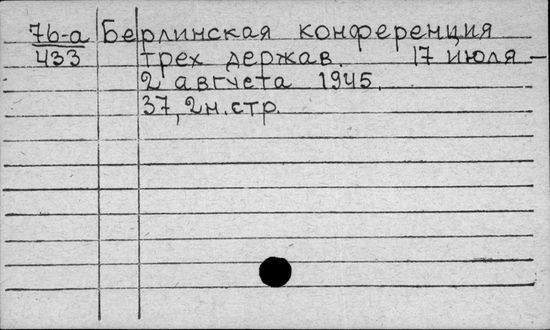 7б-а Берлинская конференция
433 трех держав. 17 июля –
2 августа 1945.
37, 2н.стр.